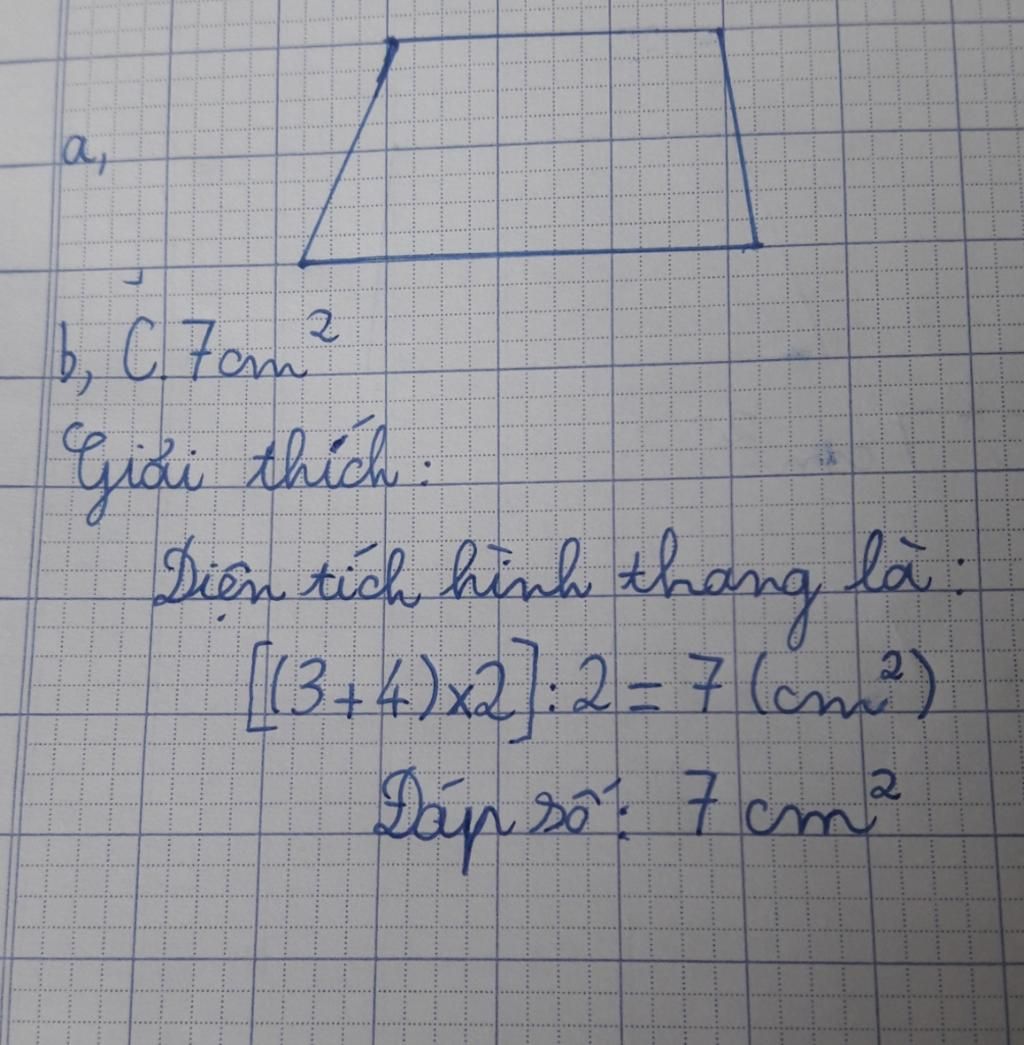 a,
b, C. 7cm²
Giải thích:
Diện tích hình thang là:
[(3+4)x2]:2=7(cm²)
Đáp số: 7cm²